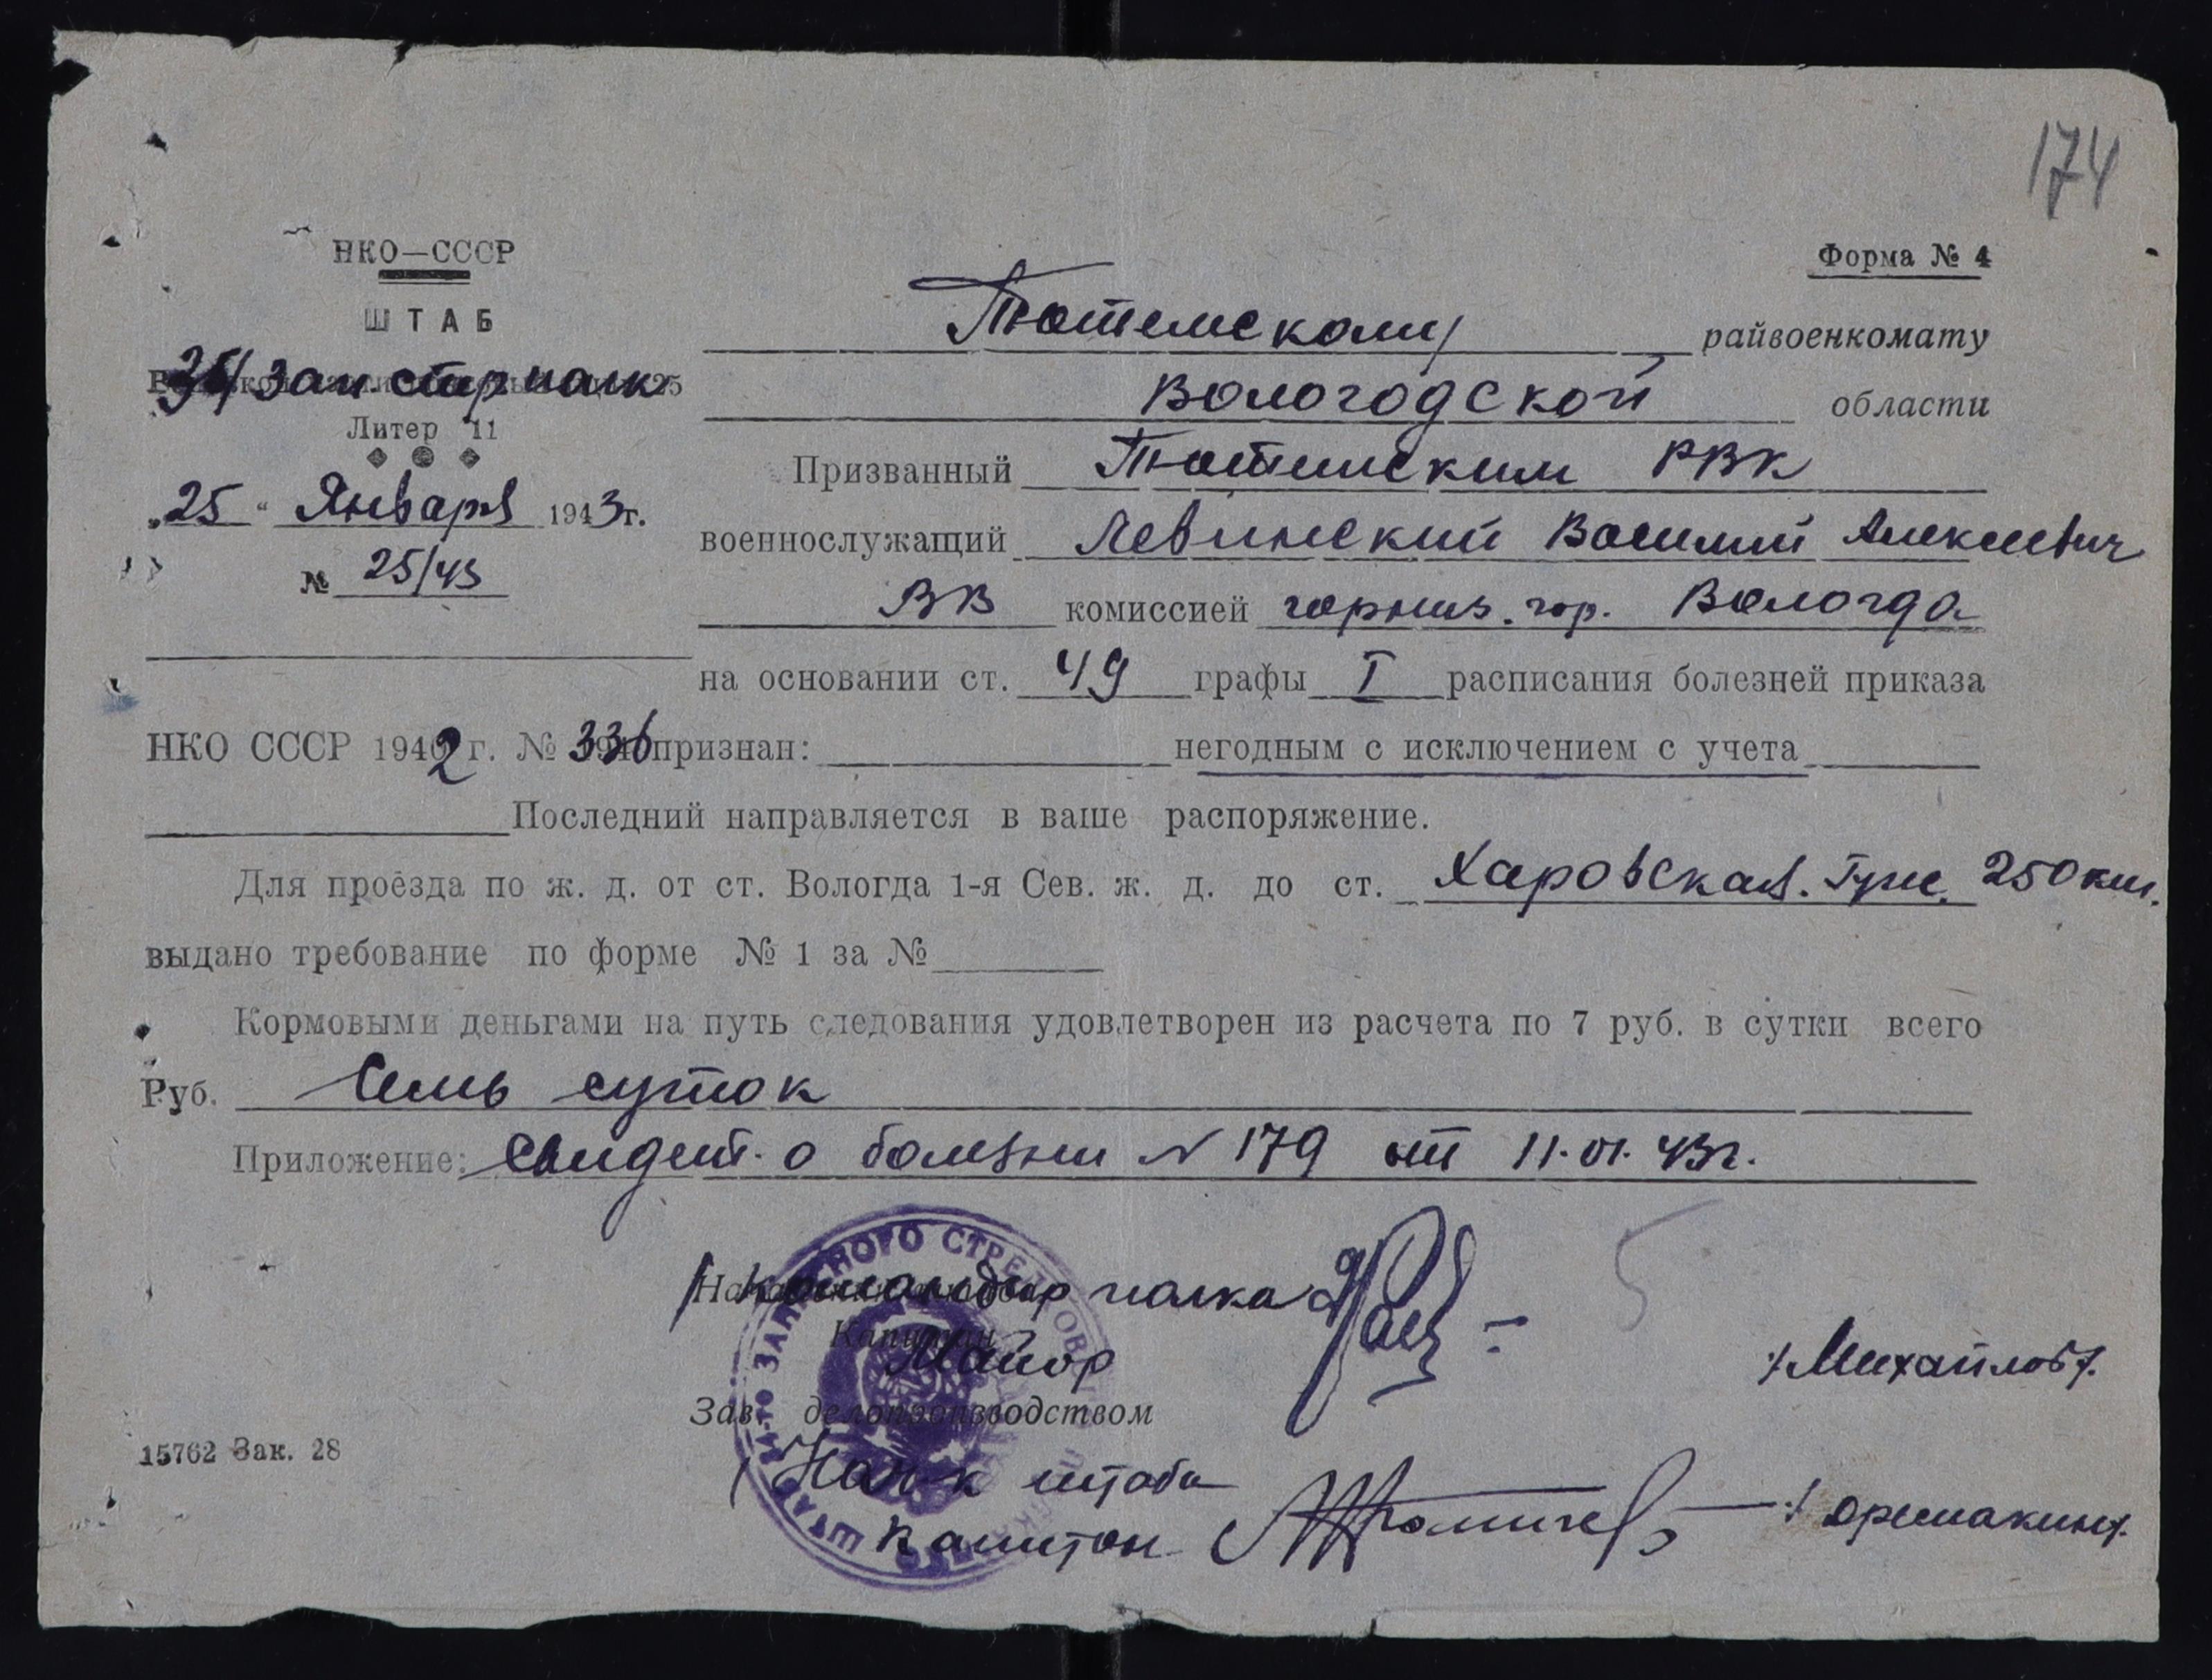 174
НКО—СССР
Форма № 4
ШТАБ
Тотемскому райвоенкомату
зап стр полк
Вологодской области
Литер 11
Призванный Тотемским РВК
„25“ Января 1943г.
военнослужащий Левинский Василий Алексеевич
№ 25/43
ВВ комиссией горниз. гор. Вологда
на основании ст. 49 графы I расписания болезней приказа
НКО СССР 1942 г. № 336 признан: негодным с исключением с учета
Последний направляется в ваше распоряжение.
Для проезда по ж. д. от ст. Вологда 1-я Сев. ж. д. до ст. Харовская. 250 км.
выдано требование по форме № 1 за №
Кормовыми деньгами на путь следования удовлетворен из расчета по 7 руб. в сутки всего
Руб. Семь суток
Приложение: Свидет. о болезни N 179 от 11.01.43г.
Командир полка
Капитан
Майор
/Михайлов/.
Зав. делопроизводством
Нач к штаба
Капитан
15762 Зак. 28